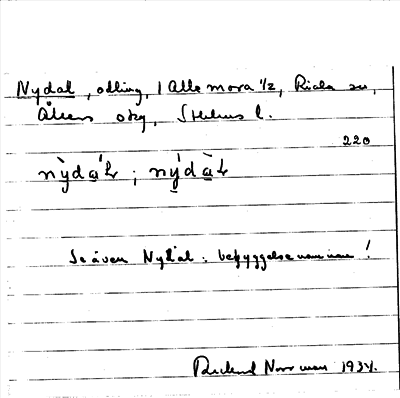 Nydal, odling, i Alle mora 1/2, Riala sn,
Åkers skg, Sthlms l.
220
nỳda̲'L ; ný̲dà̲L
Se även Nydal. bebyggelsenamn!
Rickard Norrman 1934.